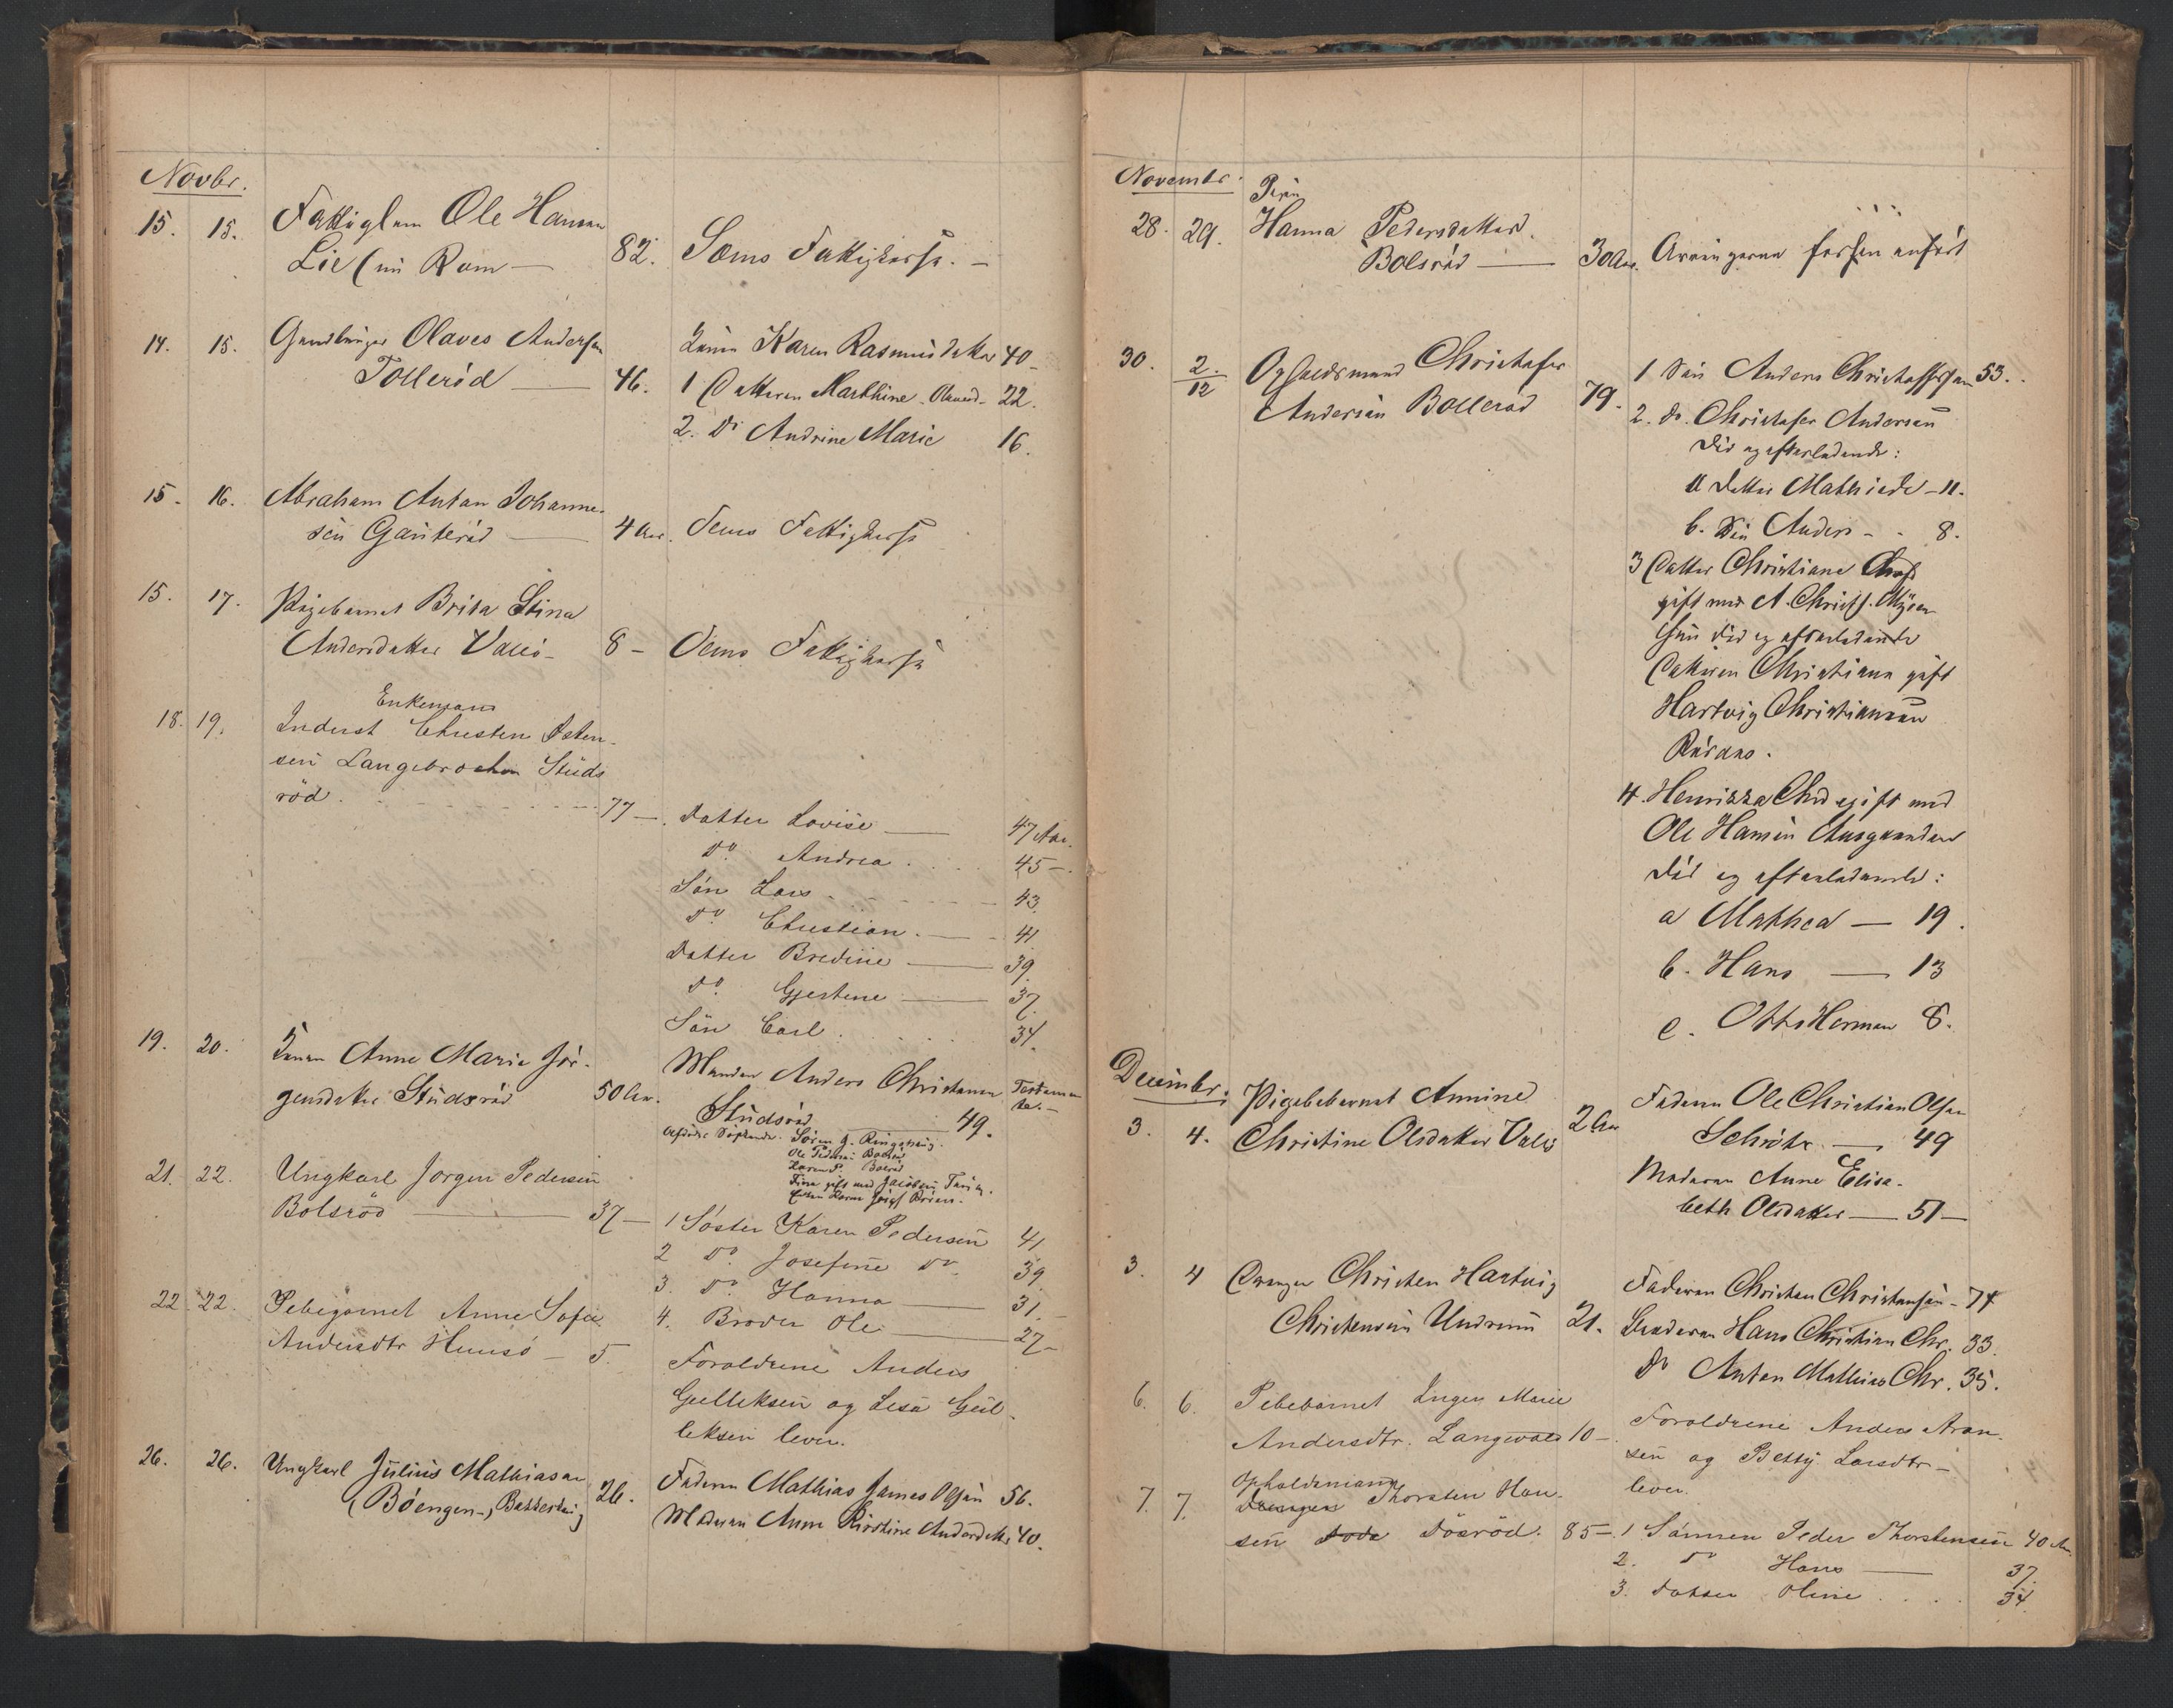 Novbr.
15. 15. Fattiglem Ole Hansen
Lie (nu Ram — 82. Sems Fattigkasse. —
14. 15. Gaardbruger Olaves Andersen
Tollerød — 46.
Enken Karen Rasmusdatter 40 —
1 Datteren Marthine Olavesd. 22.
2. Do Andrine Marie 16.
15. 16. Abraham Anton Johanne-
sen Gauterød — 4 Aar. Sems Fattigkasse
15. 17. Pigebarnet Brita Stina
Andersdatter Valø — 8 — Sems Fattigkasse
Enkemand
18. 19. Inderst Christen Osten-
sen Langebrochen Studs
rød. 77 —. Datter Lovise — 47 Aar.
Do Andrea . . . 45 —.
Sön Lars 43.
Do Christian. — 41
Datter Bredine — 39.
Do Gjertine — 37.
Sön Carl . . . 34.
19. 20. Konen Anne Marie Jör-
gensdatter Studsrød 50 Aar.
Manden Anders Christensen
Studsrød — 49.
Søskende. Søren J. Ringshaug.
Ole Pedersen Bolsrød
Karen P. Bolsrød
Tina gift med Jacobsen
21. 22. Ungkarl Jørgen Pedersen
Bolsröd — 37 —
1 Søster Karen Pedersen 41
2 Do Josefine Do 39.
3. Do Hanna — 31. —
4. Broder Ole — 27 —
22. 22. Pebegarnet Anne Sofie
Andersdtr — 5.
Foraldrene Anders
Gulleksen og Lesa Gul-
leksen lever.
26. 26. Ungkarl Julius Mathiasen
(Böengen —) 26.
Faderen Mathias James Olsen 56.
Moderen Anne Kirstine Andersdatter 40.
Novembr.
Pigen
28. 29. Hanna Pedersdatter.
Bolsrød — 30 Aar. Arvingerne forhen anført
30. 2./12 Opholdsmand Christofer
Andersen Bollerød 79.
1 Søn Anders Christoffersen 53.
2. Do. Christofer Andersen
død og efterladende:
a Datter Mathilde — 11.
b. Søn Anders — . 8.
3 Datter Christiane Chrsd
gift med A. Christf.
hun død og efterladende
Datteren Christiane gift
Hartvig Christiansen
4. Henrikka Chrd gift med
Ole Hansen
død og efterladende:
a Mathea — 19.
b. Hans — 13
c. Otto Herman 8.
Decembr.
3. 4. Pigebebarnet Annine
Christine Olsdatter Valø 2 Aar
Faderen Ole Christian Olsen
Schrøder — 49
Moderen Anne Elisa-
beth Olsdatter — 51 —
3. 4 Drengen Christen Hartvig
Christensen Undrum 21.
Faderen Christen Christensen — 74
Broderen Hans Christian Chr. 33.
Do Anton Mathias Chr. 35.
6. 6. Pebebarnet Inger Marie
Andersdtr. Langevold 10 —.
Foraldrene Anders Aron-
sen og Betty Larsdtr —
lever.
Opholdsmand
7. 7. Drengen Thorsten Han-
sen Döda Dösröd. 85 —. 1 Sönnen Peder Thorstensen 40 Aar.
2. Do Hans — 37.
3. Datter Oline . . . . 34.